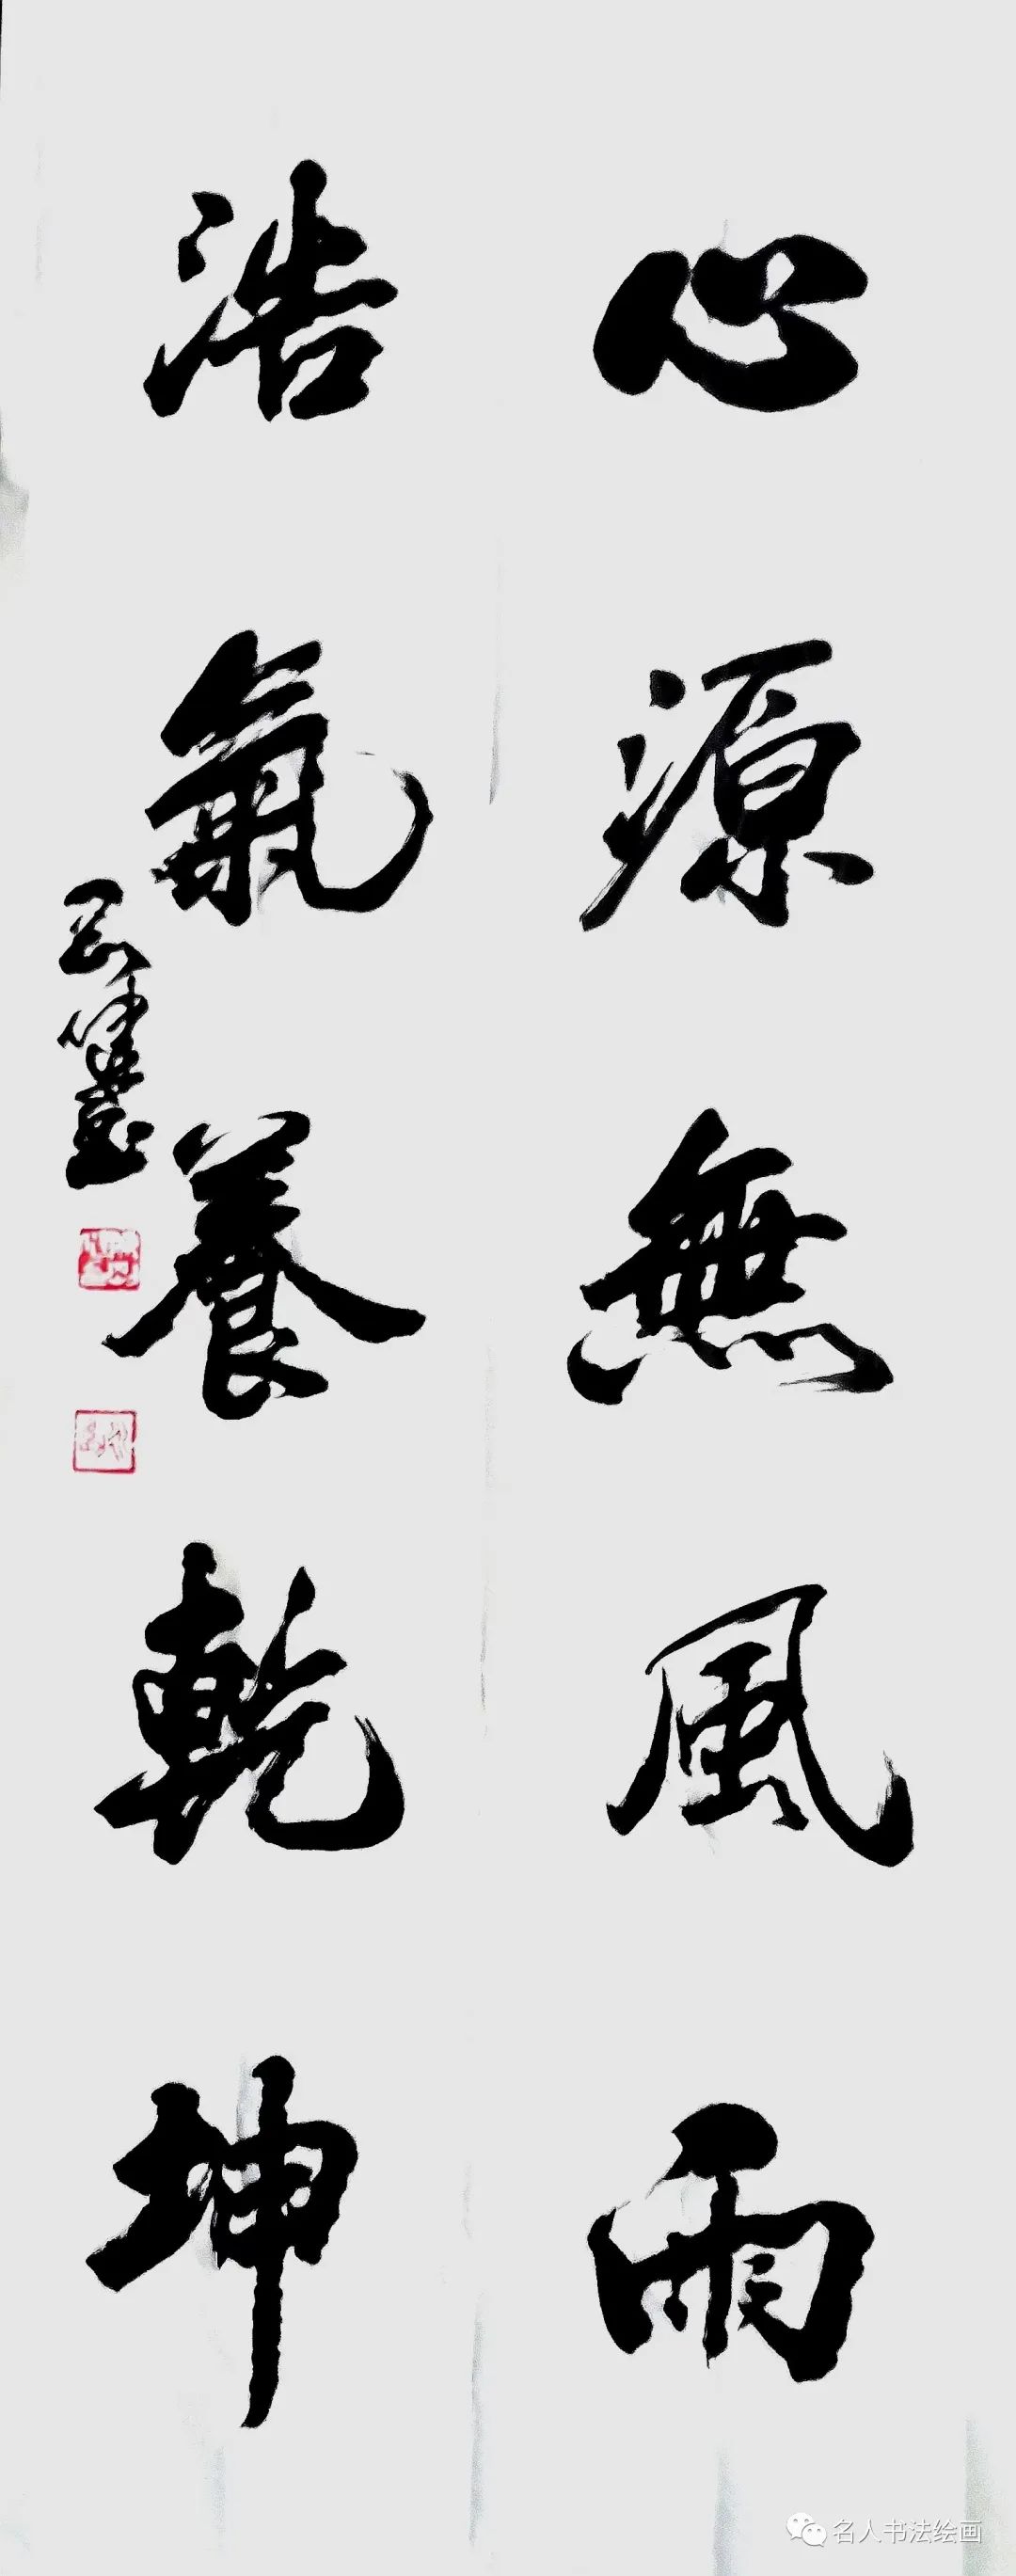 心源無風雨
浩氣養乾坤
名人书法绘画